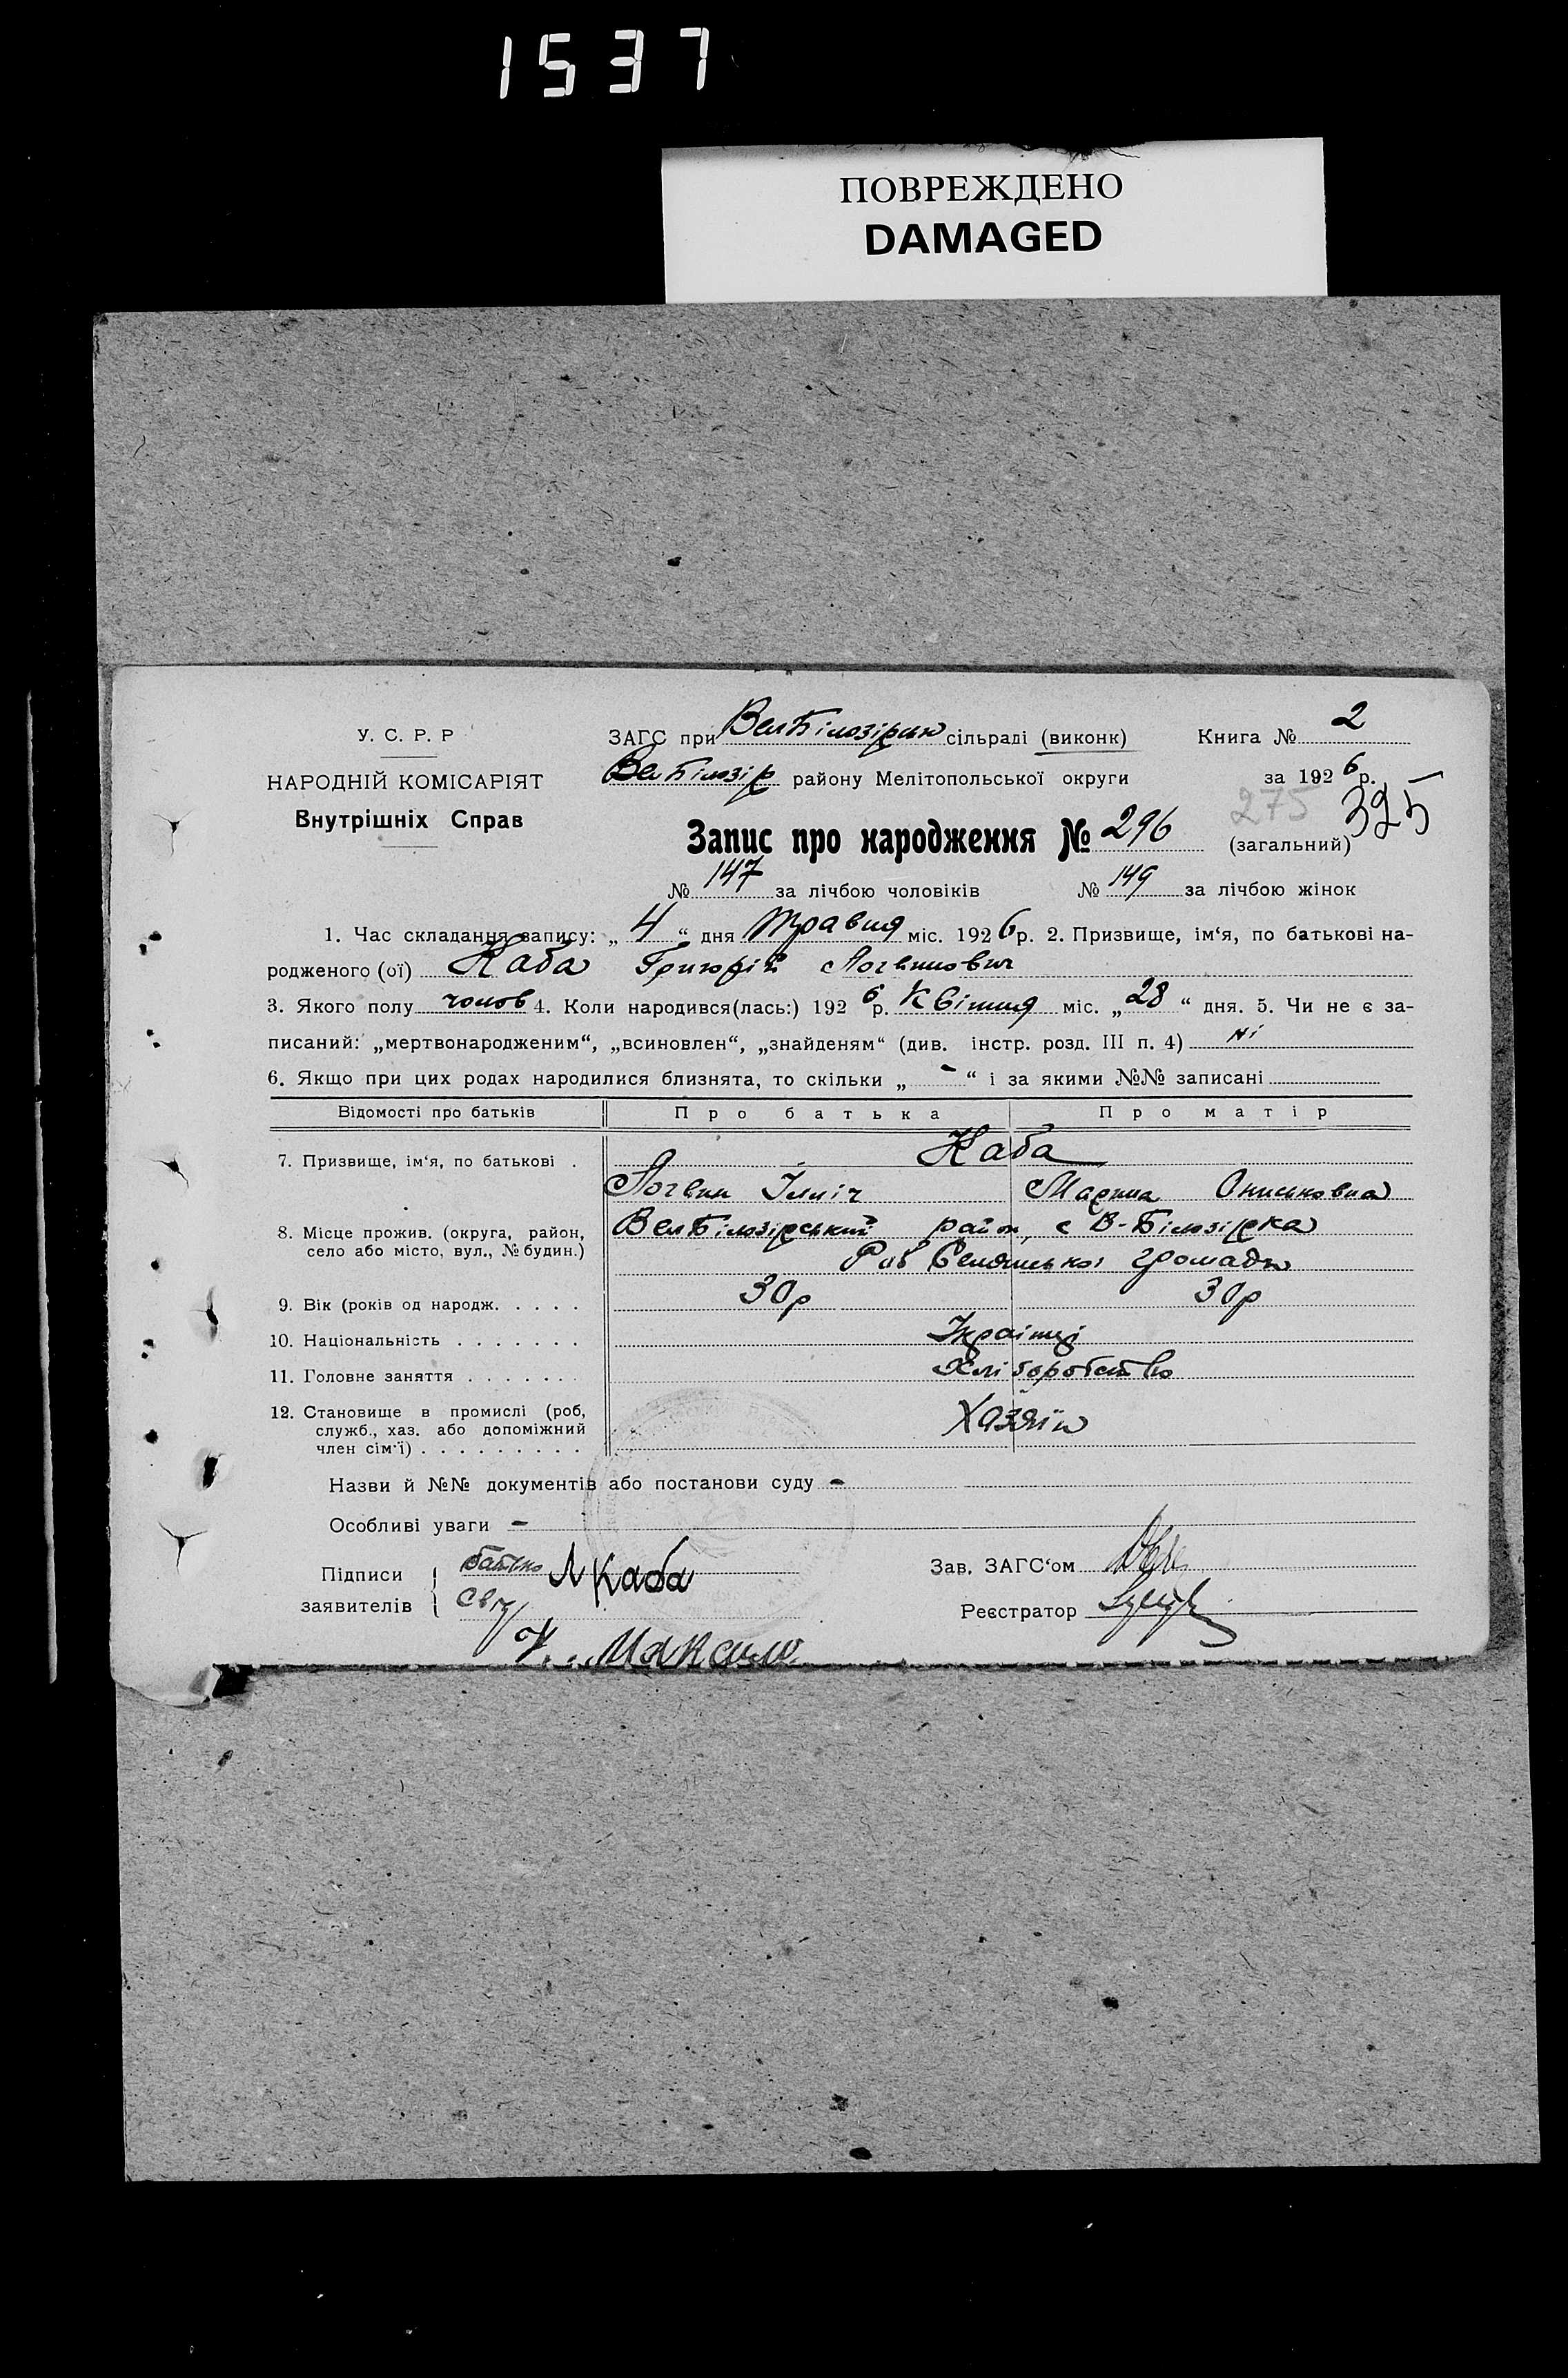 1537
ПОВРЕЖДЕНО
DAMAGED
У. С. Р. Р
НАРОДНІЙ КОМІСАРІЯТ
Внутрішніх Справ
ЗАГС при ВелБілозірськ сільраді (виконк) Книга № 2
ВелБілозір району Мелітопольської округи за 1926 р.
275 325
Запис про народження № 296 (загальний)
№ 147 за лічбою чоловіків № 149 за лічбою жінок
1. Час складання запису: „ 4 “ дня Травня міс. 1926 р. 2. Призвище, ім‘я, по батькові на-
родженого (ої) Каба Григорій Логвинович
3. Якого полу чолов 4. Коли народився(лась:) 1926 р. Квітня міс. „ 28 “ дня. 5. Чи не є за-
писаний: „мертвонародженим“, „всиновлен“, „знайденям“ (див. інстр. розд. III п. 4) ні
6. Якщо при цих родах народилися близнята, то скільки „ - “ і за якими №№ записані
Відомості про батьків Про батька Про матір
7. Призвище, ім‘я, по батькові . Каба
Логвин Ілліч Марина Ониськовна
8. Місце прожив. (округа, район, село або місто, вул., № будин.) ВелБілозірський район, с В-Білозірка
Селянської громади
9. Вік (років од народж. . . . . 30р 30р
10. Національність . . . . . . . Українці
11. Головне заняття . . . . . . . Хліборобство
12. Становище в промислі (роб, служб., хаз. або допоміжний член сім‘ї) . . . . . . . . . Хазяїн
Назви й №№ документів або постанови суду -
Особливі уваги -
Підписи заявителів батько Л Каба
Зав. ЗАГС‘ом
Реєстратор